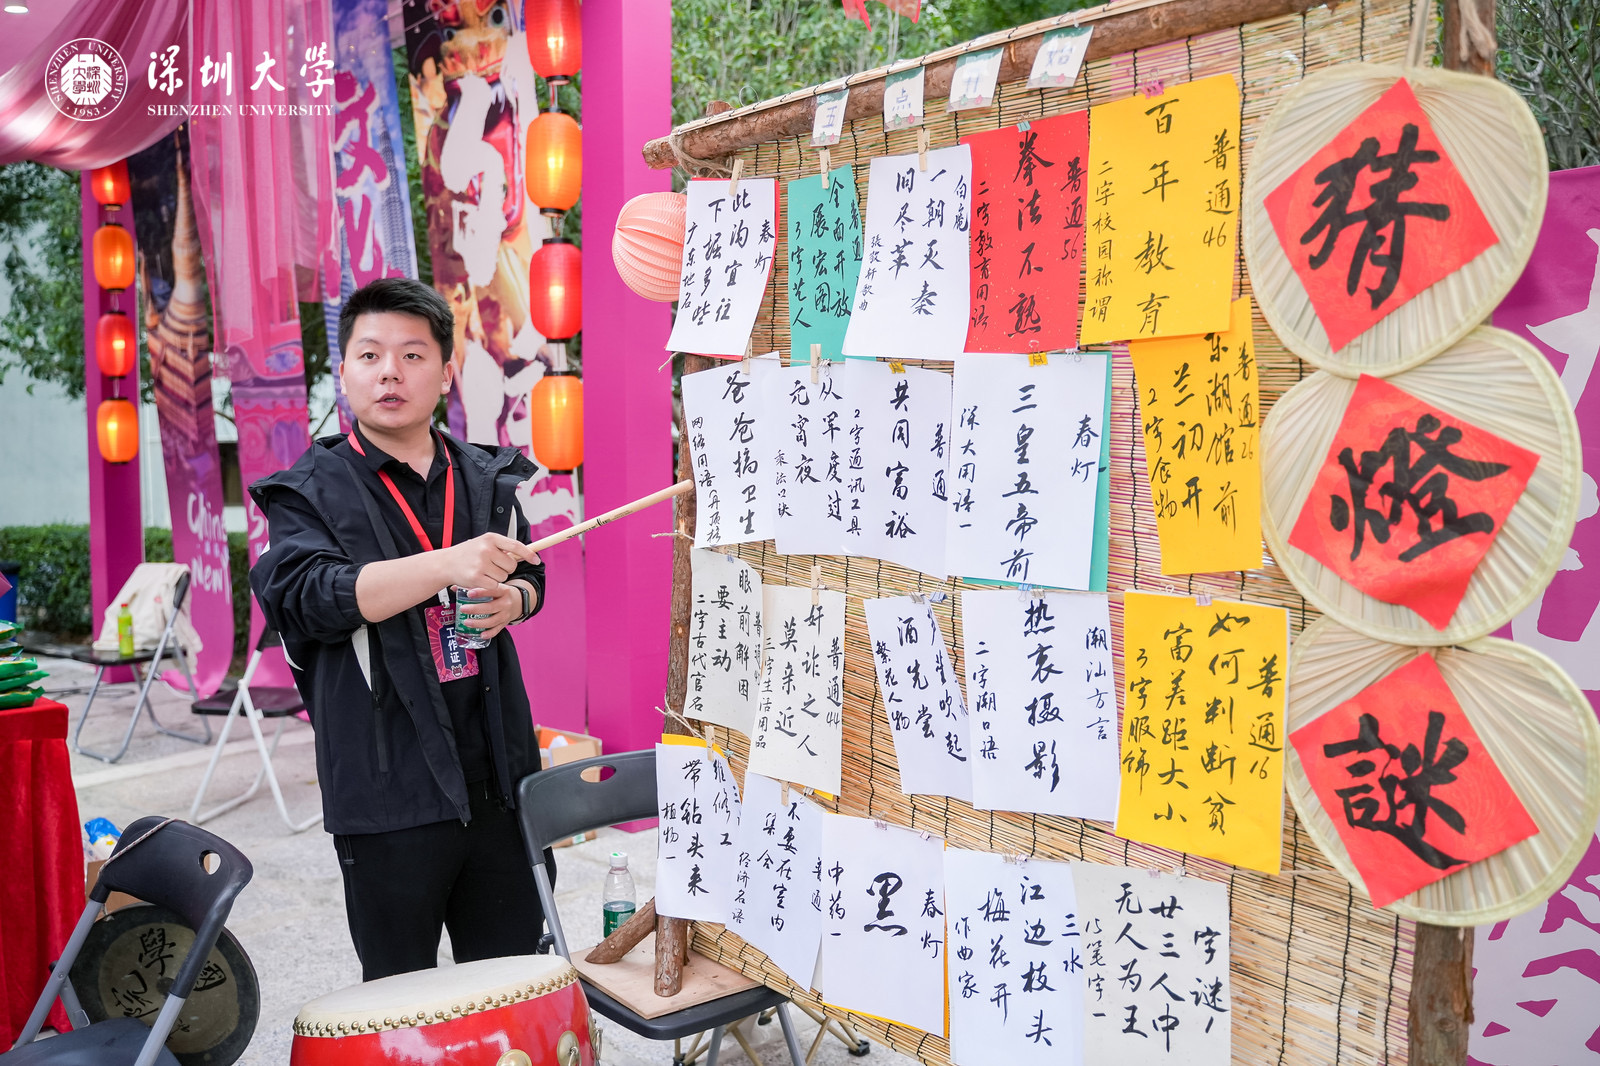 深圳大学
SHENZHEN UNIVERSITY
SHENZHEN UNIVERSITY
1983
五点廿始
春灯
此沟宜往
下掘多些
广东地名
普通
全面开放
展宏图
3字艺人
白虎
一朝灭秦
旧尽革
张敬轩歌曲
普通56
拳法不熟
二字教育用语
普通46
百年教育
二字校园称谓
猜
燈
謎
爸爸搞卫生
网络用语
从军度过
元宵夜
乘法口诀
普通
共同富裕
2字通讯工具
春灯
三皇五帝前
深大用语一
普通26
东湖馆前
兰初开
2字食物
眼前解困
要主动
二字古代官名
普通44
奸诈之人
莫亲近
三字生活用品
酒先尝
繁花人物
潮汕方言
热衷摄影
二字潮口语
普通16
如何判断贫
富差距大小
3字服饰
维修工
带钻头来
植物一
普通
不要在室内
集合
经济名语
春灯
黑
中药一
三水
江边枝头
梅花开
作曲家
字谜1
廿三人中
无人为王
15笔字一
工作证
China
New
學